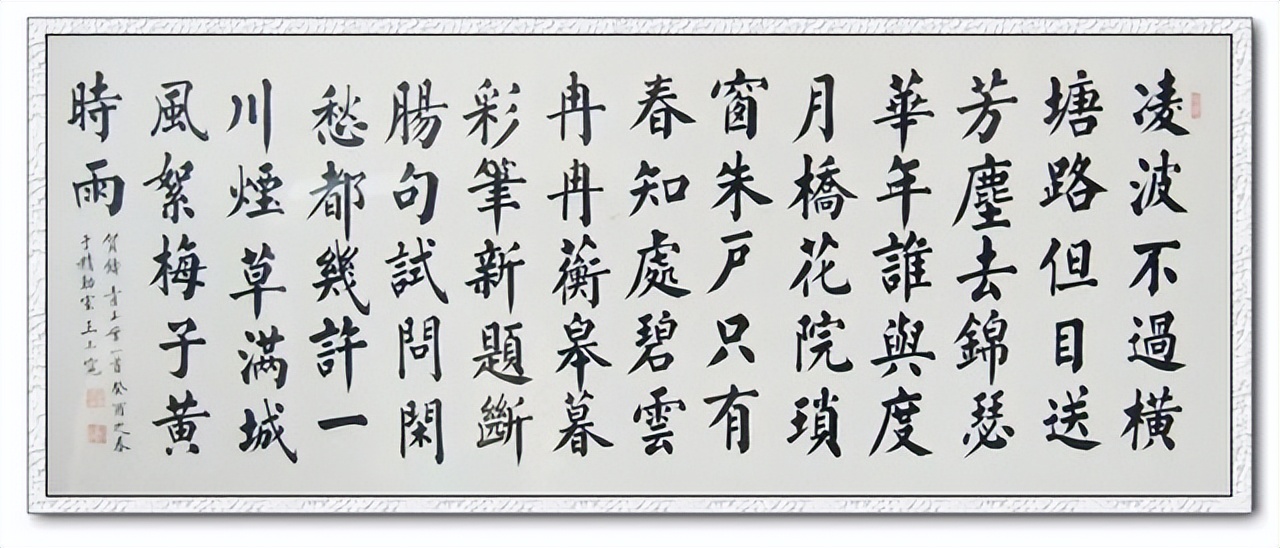 凌波不過橫
塘路但目送
芳塵去錦瑟
華年誰與度
月橋花院瑣
窗朱戶只有
春知處碧雲
冉冉蘅皋暮
彩筆新題斷
腸句試問閑
愁都幾許一
川煙草满城
風絮梅子黃
時雨
賀鑄 青玉案一首 癸酉之春